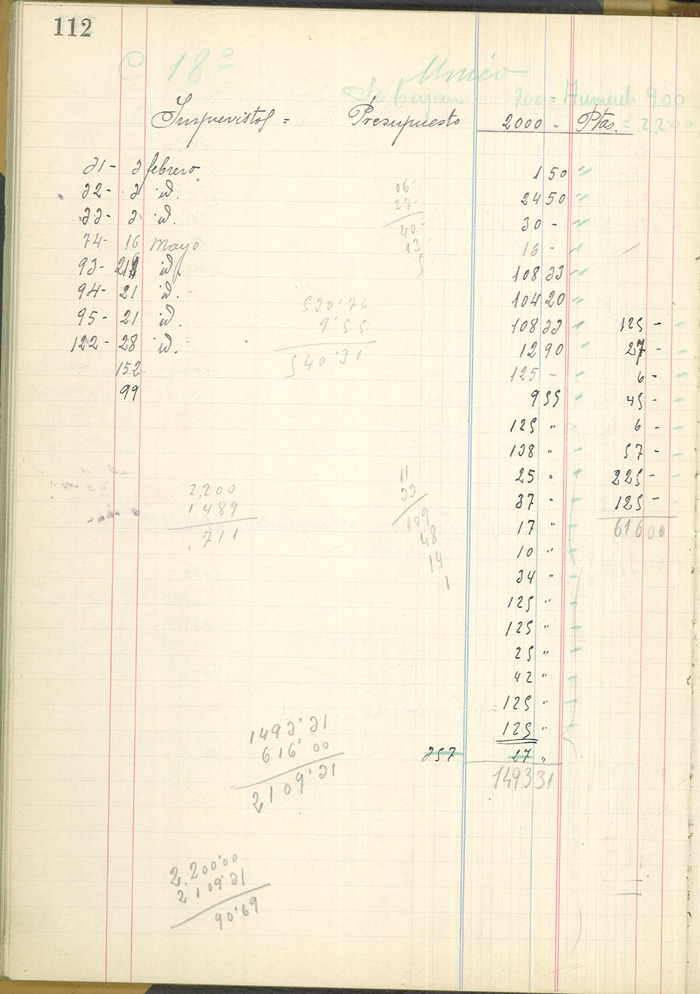 112
C 18º Unico
Se bajan 700 = Aumento 900
Imprevistos = Presupuesto 2000 - Ptas. = 2,200
31 - 3 febrero. 1 50 "
32 - 3 id. 06 24 50 "
33 - 3 id. 27 30 - "
74 - 16 Mayo 40 16 - "
93 - 21 id. 13 108 33 "
94 - 21 id. 5 104 20 "
95 - 21 id. 530'76 108 33 125 -
122 - 28 id. 9'55 12 90 27 -
152 540'31 125 - 6 -
99 9 55 45 -
125 " 6 -
138 " 57 -
11 25 " 225 -
2,200 33 37 " 125 -
1 489 109 17 " 616 00
711 48 10 "
14 34 "
1 125 "
125 "
25 "
42 "
125 "
1493'31 125 "
616'00 357 27 "
2109'31 1493 31
2,200'00
2,109'31
90'69